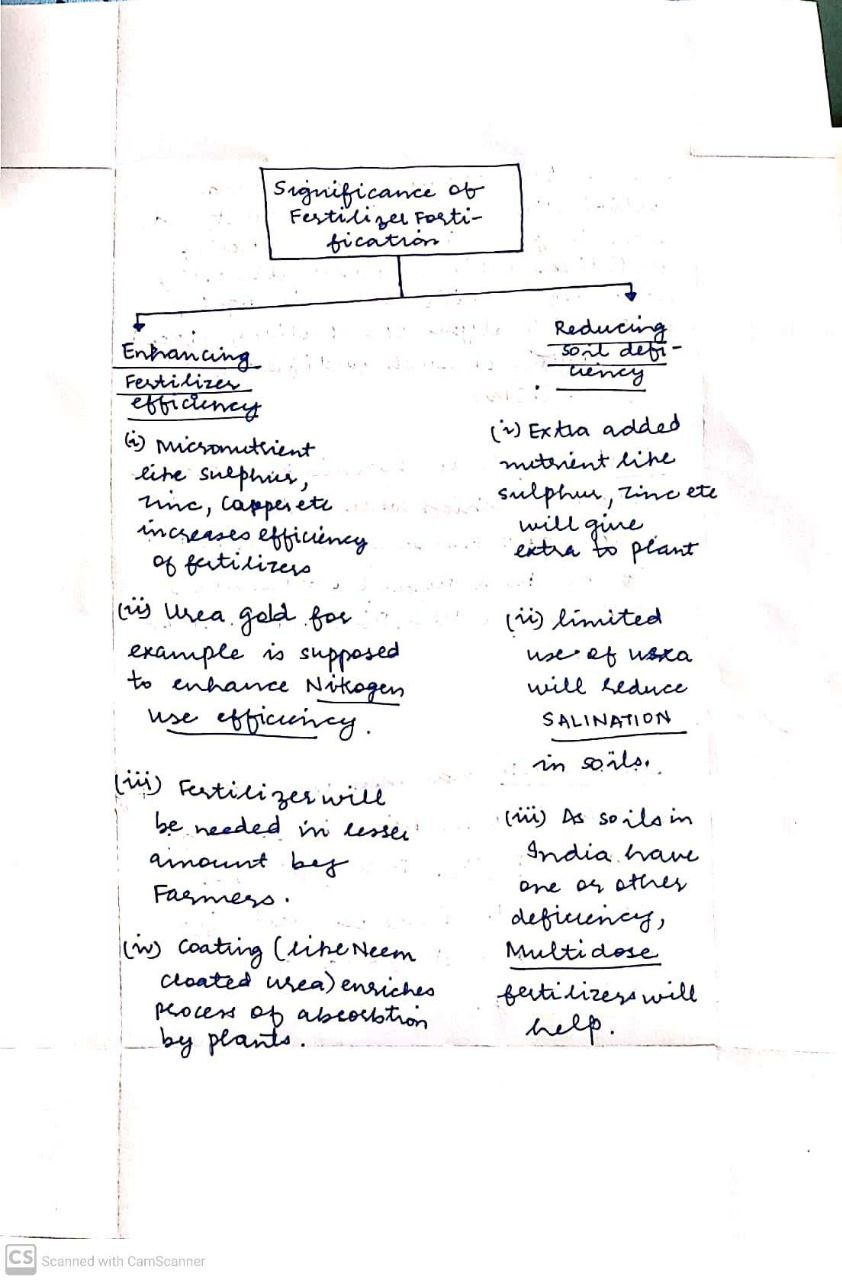 Significance of
Fertilizer Forti-
fication
Enhancing
Fertilizer
efficiency
(i) Micronutrient
like sulphur,
zinc, Copper etc
increases efficiency
of fertilizers
(ii) Urea gold for
example is supposed
to enhance Nitrogen
use efficiency.
(iii) Fertilizer will
be needed in lesser
amount by
Farmers.
(iv) Coating (like Neem
cloated urea) enriches
process of absorbtion
by plants.
Reducing
soil defi-
ciency
(i) Extra added
nutrient like
sulphur, zinc etc
will give
extra to plant
(ii) limited
use of urea
will reduce
SALINATION
in soils.
(iii) As soils in
India have
one or other
deficiency,
Multidose
fertilizers will
help.
CS Scanned with CamScanner